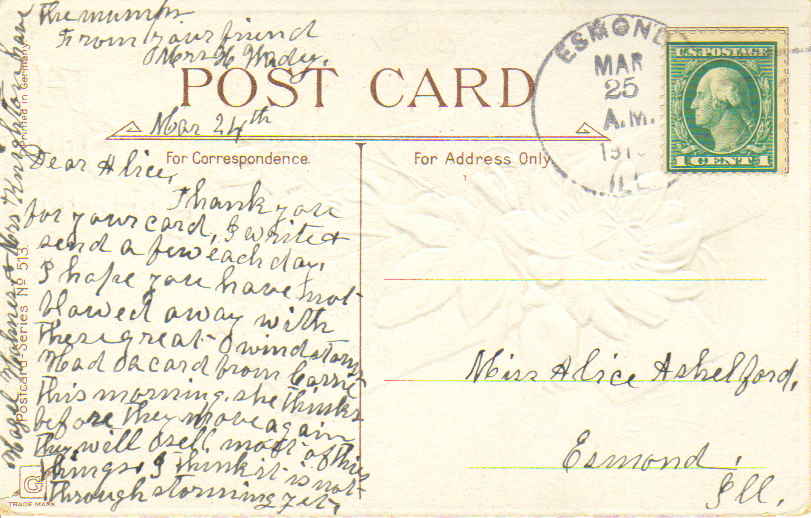 The mumps
From your friend
Mrs H Wady.
POST CARD
Mar 24th
For Correspondence.
For Address Only
Dear Alice,
Thank you
for your card, I write a
send a few each day,
I hope you have not
blowed away with
these great wind storms
Had a card from Carrie
this morning, she thinks
before they move again
they will sell most of this
things, I think it is not
through storming yet,
Hazel Holmes & Mrs Knighton have
Printed in Germany
Postcard-Series No 513
TRADE MARK
ESMOND
MAR
25
A.M.
ILL
U.S. POSTAGE
1 CENT 1
Miss Alice Ashelford,
Esmond,
Ill.